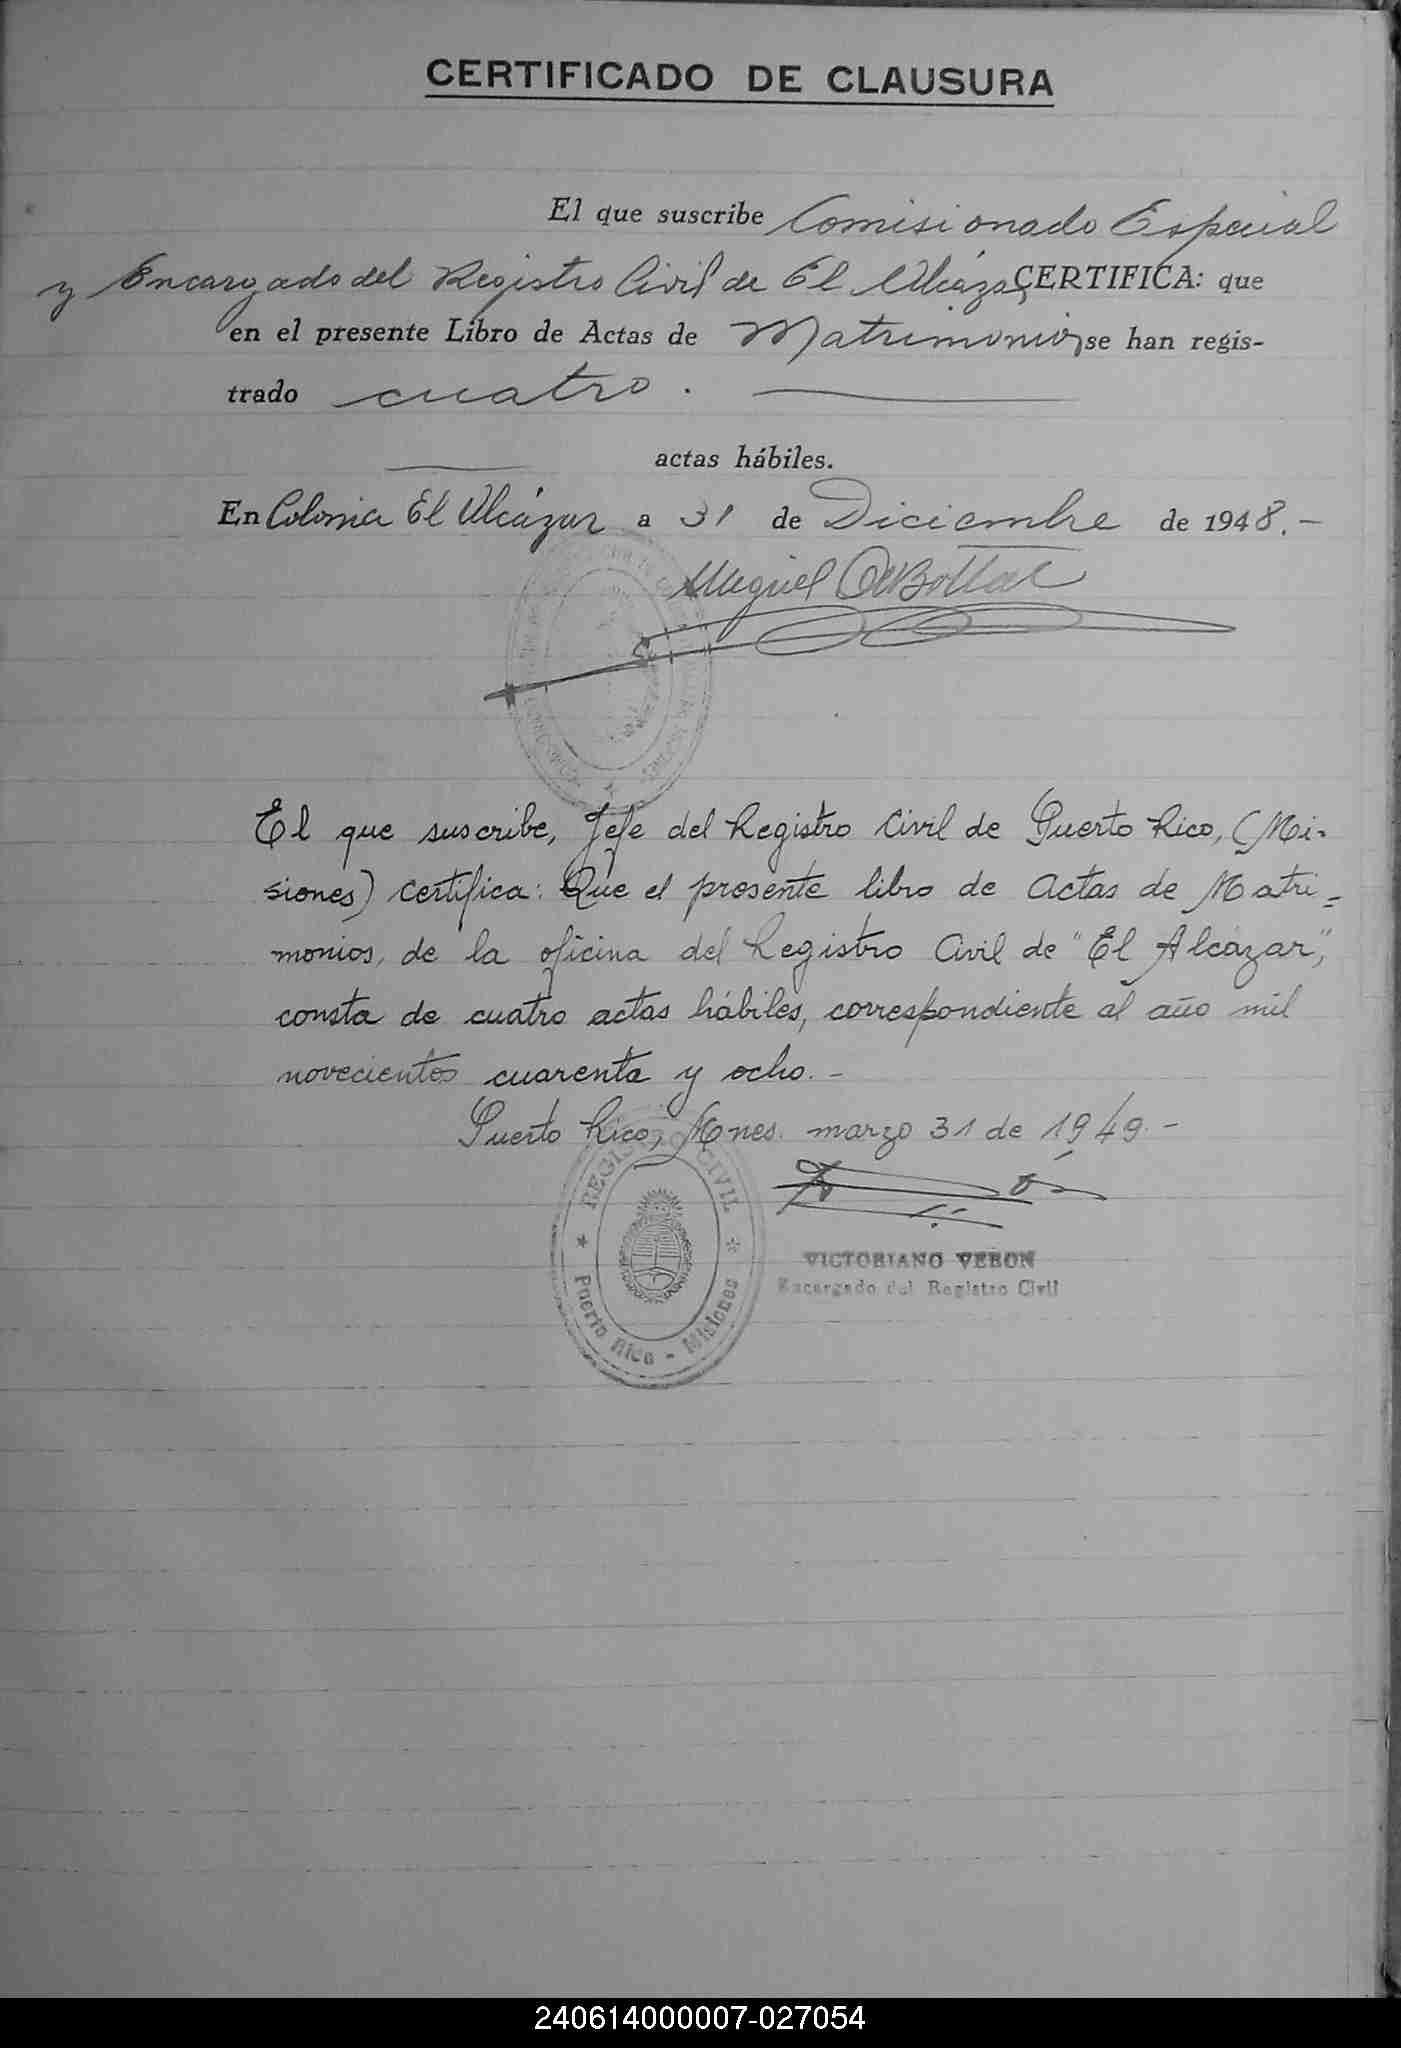 CERTIFICADO DE CLAUSURA
El que suscribe Comisionado Especial
y Encargado del Registro Civil de El Alcázar CERTIFICA: que
en el presente Libro de Actas de Matrimonios se han regis-
trado cuatro.
actas hábiles.
En Colonia El Alcázar a 31 de Diciembre de 1948.-
Miguel
El que suscribe, Jefe del Registro Civil de Puerto Rico, (Mi-
siones) certifica: Que el presente libro de Actas de Matri=
monios, de la oficina del Registro Civil de "El Alcázar",
consta de cuatro actas hábiles, correspondiente al año mil
novecientos cuarenta y ocho.-
Puerto Rico, Mnes. marzo 31 de 1949.-
REGISTRO CIVIL
Puerto Rico - Misiones
VICTORIANO VERON
Encargado del Registro Civil
240614000007-027054